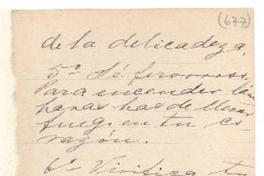 (677)
de la delicadeza.
5º Sé fervorosa.
Para encender lám
paras has de llevar
fueg. en tu co-
razón.
6º Vivifica tu